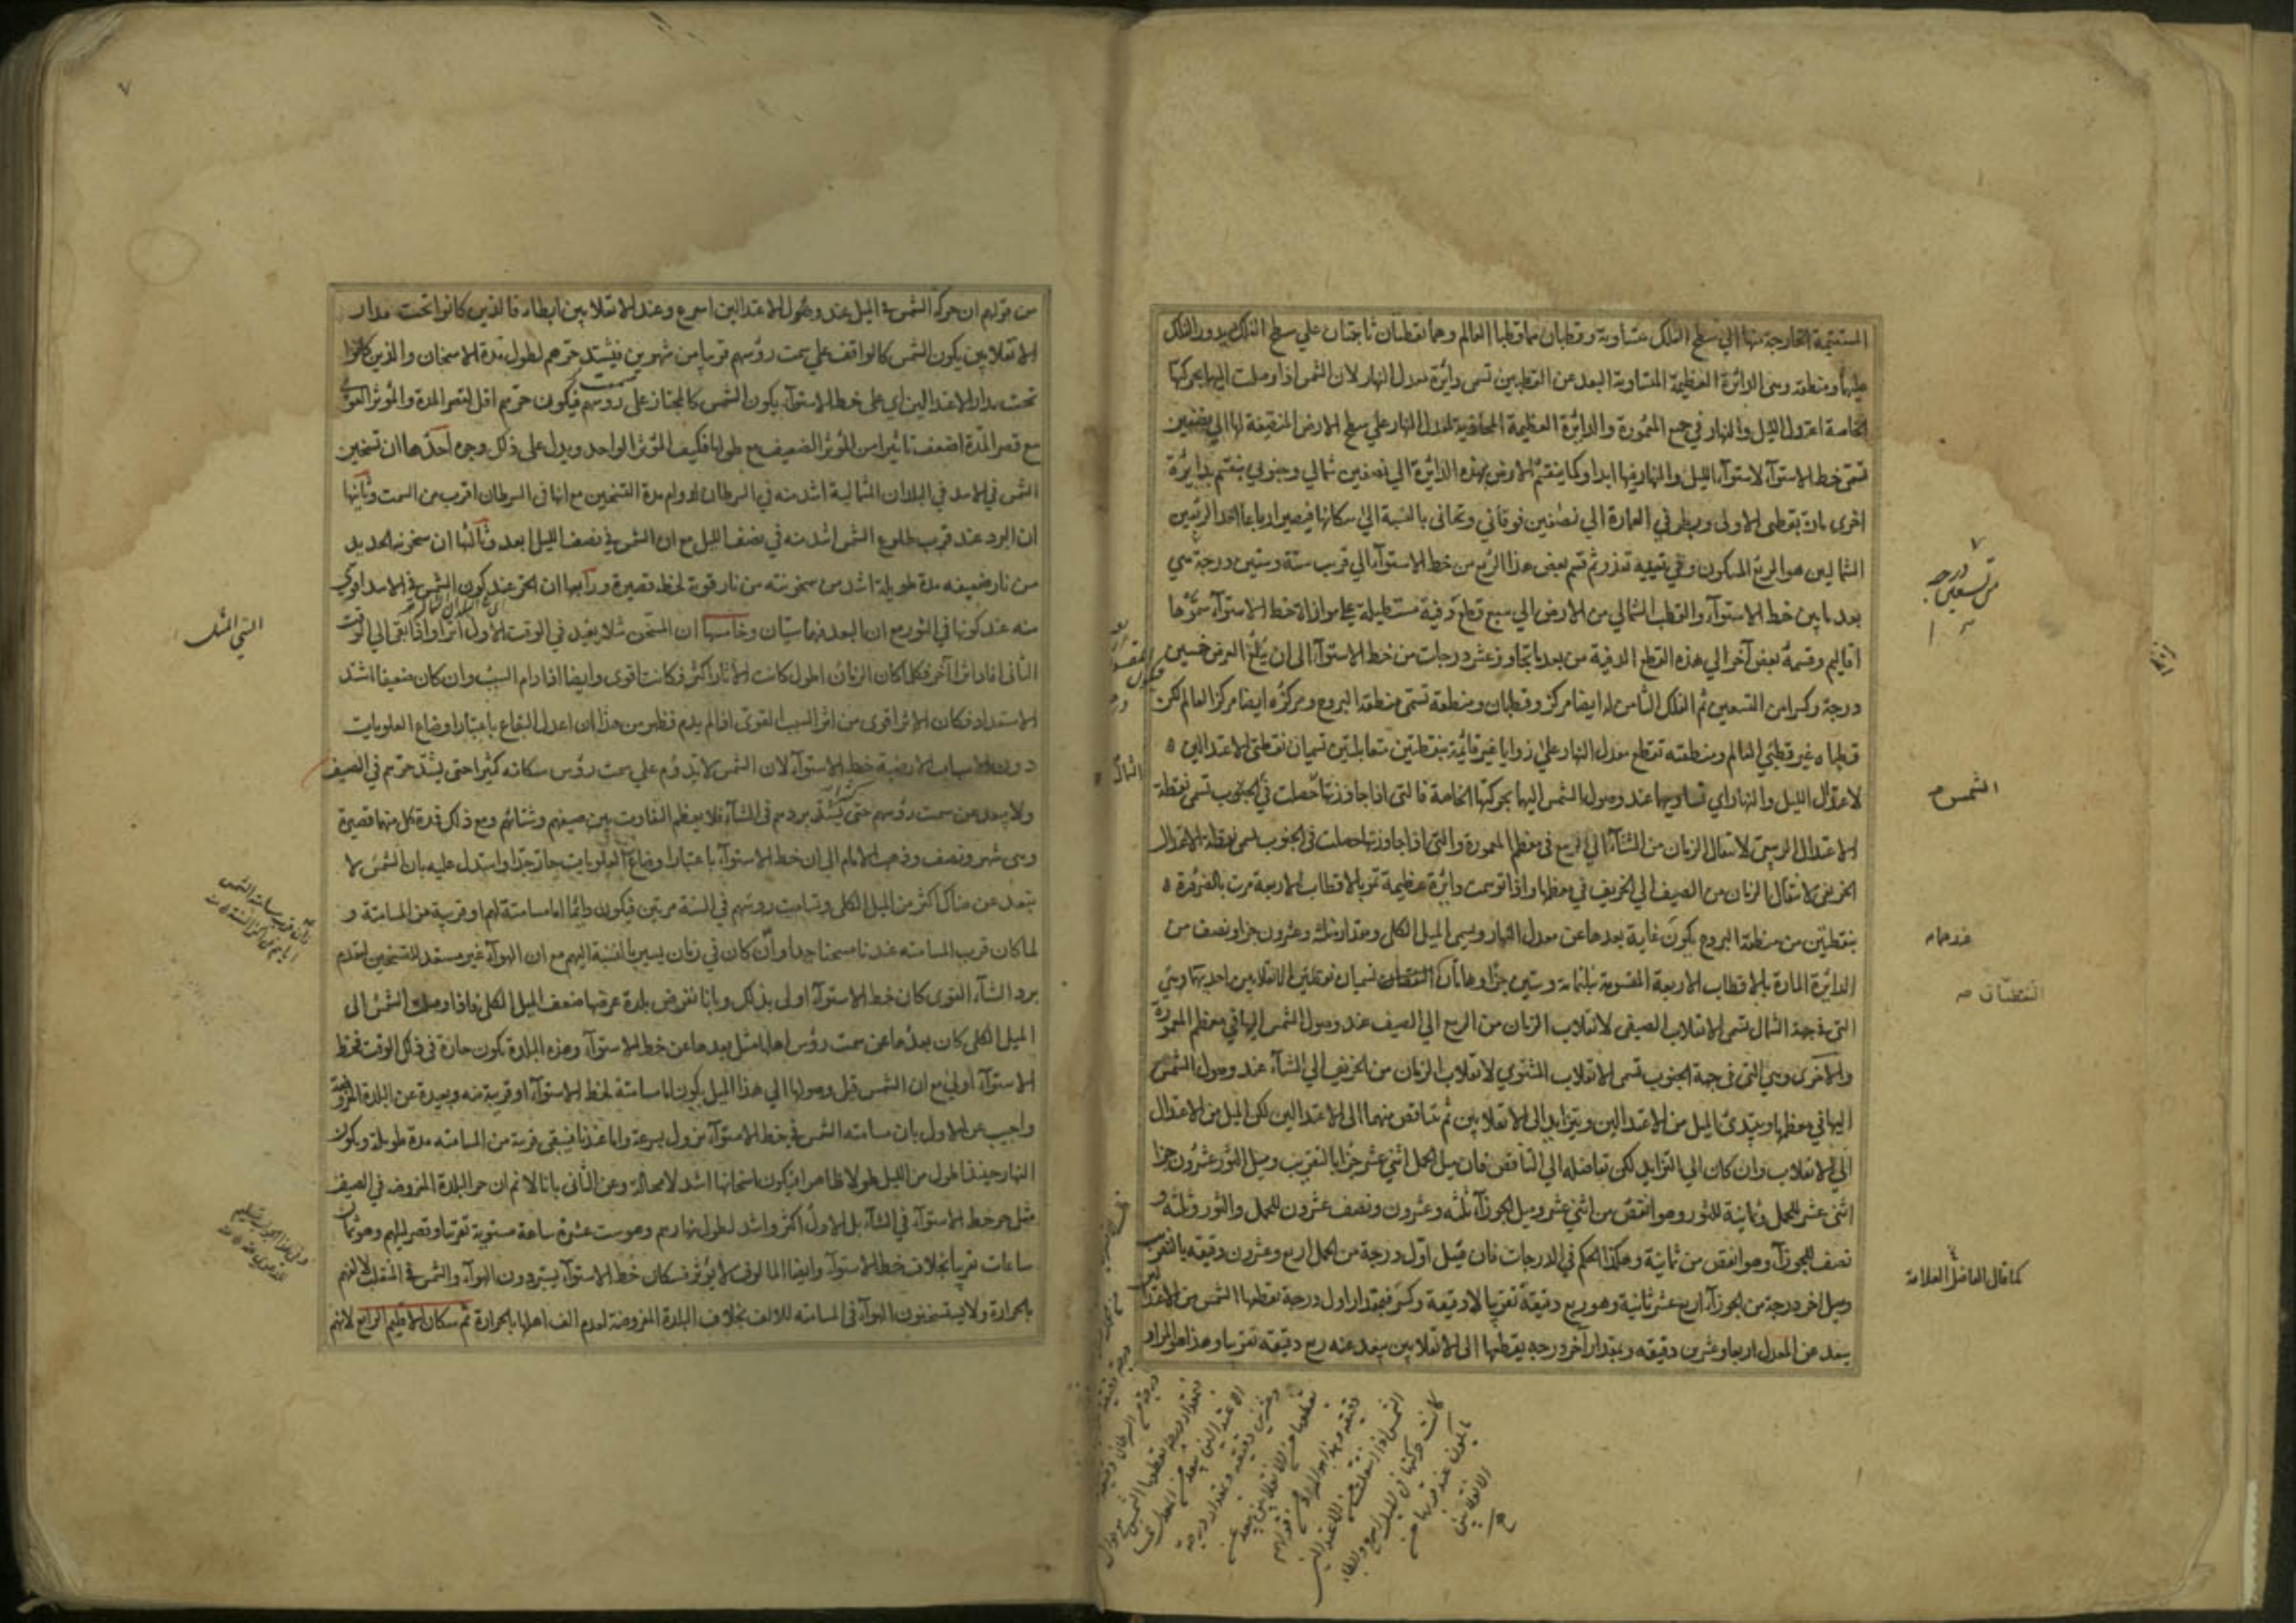 المستقيمة الخارجة منها الي سطح الفلك متساوية وقطبان هما قطبا العالم وهما نقطتان ثابتتان علي سطح الفلك يدور الفلك
عليهما ومنطقة وهى الدائرة العظيمة المتساوية البعد عن القطبين تسمى دائرة معدل النهار لان الشمس اذا وصلت اليها بحركتها
الخاصة اعتدل الليل والنهار في جميع المعمورة والدائرة العظيمة المحاذية لمعدل النهار علي سطح الارض المنصفة لها الي نصفين
تسمى خط الاستوآء لاستوآء الليل والنهار فيها ابدا وكما ينقسم الارض بهذه الدائرة الي نصفين شمالي وجنوبي ينقسم بدايرة
اخرى مارة بقطبى الاولى وبطرفي العمارة الي نصفين فوقاني وتحتانى بالنسبة الي سكانها فيصير ارباعا احد الربعين
الشماليين هو الربع المسكون وفي تعيينه تعذر ثم قسم بعض هذا الربع من خط الاستوآء الي قرب ستة وستين درجة هي
بعد ما بين خط الاستوآء والقطب الشمالي من الارض الي سبع قطع دقيقة مستطيلة على موازاة خط الاستوآء سموها
اقاليم وقسمة بعض آخر الي هذه القطع الدقيقة من بعد ما يتجاوز عشر درجات من خط الاستوآء الى ان يبلغ العرض خمسين
درجة وكسرا من التسعين ثم الفلك الثامن له ايضا مركز وقطبان ومنطقة تسمى منطقة البروج ومركزه ايضا مركز العالم لكن
قطباه غير قطبي العالم ومنطقته تقطع معدل النهار علي زوايا غير قائمة بنقطتين متقابلتين تسميان نقطتى الاعتدالين
لاعتدال الليل والنهار اي تساويهما عند وصول الشمس اليها بحركتها الخاصة فالتى اذا جاوزتها حصلت في الجنوب تسمى نقطة
الاعتدال الربيعى لانتقال الزمان من الشتآء الي الربيع فى معظم المعمورة والتى اذا جاوزتها حصلت فى الجنوب تسمى نقطة الاعتدال
الخريفى لانتقال الزمان من الصيف الي الخريف في معظمها واذا توهمت دائرة عظيمة تمر بالاقطاب الاربعة مرت بالضرورة
بنقطتين من منطقة البروج يكون غاية بعدها عن معدل النهار ويسمى الميل الكلى ومقداره ثلثة وعشرون جزا ونصف من
الدائرة المارة بالاقطاب الاربعة المقسومة بثلثمائة وستين جزا وهاتان النقطتان تسميان نقطتى الانقلابين احديهما وهي
التى فى جهة الشمال تسمى الانقلاب الصيفى لانقلاب الزمان من الربيع الي الصيف عند وصول الشمس اليها في معظم المعمورة
والاخرى وهي التى فى جهة الجنوب تسمى الانقلاب الشتوي لانقلاب الزمان من الخريف الي الشتآء عند وصول الشمس
اليها في معظمها ويبتدئ الميل من الاعتدالين ويتزايد الى الانقلابين ثم يتناقص منهما الى الاعتدالين لكن الميل من الاعتدال
الي الانقلاب وان كان الي التزايد لكن تفاضله الي التناقص فان ميل الحمل اثني عشر جزا بالتقريب وميل الثور عشرون جزا
اثنى عشر للحمل وثمانية للثور وهو انقص من اثني عشر وميل الجوزآء ثلثه وعشرون ونصف عشرون للحمل والثور وثلثه و
نصف للجوزآء وهو انقص من ثمانية وهكذا الحكم في الدرجات فان ميل اول درجة من الحمل اربع وعشرون دقيقه بالتقريب
وميل اخر درجة من الجوزآء اربع عشر ثانية وهو ربع دقيقة تقريبا لا دقيقة وكسر فبمقدار اول درجة تقطعها الشمس من الاعتدال
يبعد عن المعدل اربعا وعشرين دقيقه وبمقدار آخر درجه يقطعها الى الانقلابين يبعد عنه ربع دقيقه تقريبا وهذا هو المراد
من تسعين درجه
الشمس
النقطتان صه
كما قال الفاضل العلامة
٧
من قولهم ان حركة الشمس فى الميل عند وصول الاعتدالين اسرع وعند الانقلابين ابطا فالذين كانوا تحت مدار
الانقلابين يكون الشمس كالواقف علي سمت رؤسهم قريبا من شهرين فيشتد حرهم لطول مدة الاسخان والذين كانوا
تحت مدار الاعتدالين اي على خط الاستوآء يكون الشمس كالمجتاز على سمت رؤسهم فيكون حرهم اقل لقصر المدة والمؤثر القوى
مع قصر المدة اضعف تاثيرا من المؤثر الضعيف مع طولها فكيف المؤثر الواحد ويدل على ذلك وجوه احدها ان تسخين
الشمس في الاسد في البلدان الشمالية اشد منه في السرطان لدوام مدة التسخين مع انها فى السرطان اقرب من السمت وثانيها
ان البرد عند قرب طلوع الشمس اشد منه في نصف الليل مع ان الشمس فى نصف الليل ابعد وثالثها ان سخونة الحديد
من نار ضعيفه مدة طويلة اشد من سخونته من نار قوية لحظة قصيرة ورابعها ان الحر عند كون الشمس فى الاسد اقوى
منه عند كونها في الثور مع ان البعد فيهما سيان وخامسها ان المسخن مثلا يفيد في الوقت الاول اثرا واذا بقى الي الوقت
الثانى افاد اثرا آخر فكلما كان الزمان اطول كانت الآثار اكثر فكانت اقوى وايضا اذا دام السبب وان كان ضعيفا اشتد
الاستعداد فكان الاثر اقوى من اثر السبب القوى اذا لم يدم فظهر من هذا ان اعدل البقاع باعتبار اوضاع العلويات
دون الاسباب الارضية خط الاستوآء لان الشمس لا يدوم علي سمت رؤس سكانه كثيرا حتى يشتد حرهم في الصيف
ولا يبعد عن سمت رؤسهم حتى يشتد بردهم فى الشتآء فلا يعظم التفاوت بين صيفهم وشتائهم ومع ذلك فمدة كل منهما قصيرة
وهى شهر ونصف وذهب الامام الى ان خط الاستوآء باعتبار اوضاع العلويات حار جدا واستدل عليه بان الشمس لا
يبتعد عن هناك اكثر من الميل الكلى وتسامت رؤسهم في السنة مرتين فيكون دائما اما مسامتة لهم او قريبة من المسامتة و
لما كان قرب المسامته عندنا مسخنا جدا وان كان في زمان يسير بالنسبة اليهم مع ان الهوآء غير مستعد للتسخين لتقدم
برد الشتآء القوى كان خط الاستوآء اولى بذلك وبانا نفرض بلدة عرضها ضعف الميل الكلى فاذا وصلت الشمس الى
الميل الكلى كان بعدها عن سمت رؤس اهلها مثل بعدها عن خط الاستوآء وهذه البلدة تكون حارة فى ذلك الوقت فخط
الاستوآء اولى مع ان الشمس قبل وصولها الي هذا الميل يكون اما مسامتة لخط الاستوآء او قريبة منه وبعيدة عن البلدة المفروضة
واجيب عن الاول بان مسامته الشمس فى خط الاستوآء يزول بسرعة واما عندنا فيبقى قريبة من المسامته مدة طويلة ويكون
النهار حينئذ اطول من الليل طولا ظاهرا فيكون اسخانها اشد لا محالة وعن الثانى بانا لا نم ان حر البلدة المفروضه في الصيف
مثل حر خط الاستوآء في الشتآء بل الاول اكثر واشد لطول نهارهم وهو ست عشرة ساعة مستوية تقريبا وقصر ليلهم وهو ثمان
ساعات تقريبا بخلاف خط الاستوآء وايضا المالوف لا يؤثر فسكان خط الاستوآء يستبردون الهوآء والشمس فى المنقلب لالفهم
بالحرارة ولا يستسخنون الهوآء فى المسامته للالف بخلاف البلدة المفروضة لعدم الف اهلها بالحرارة ثم سكان الاقليم الرابع لانهم